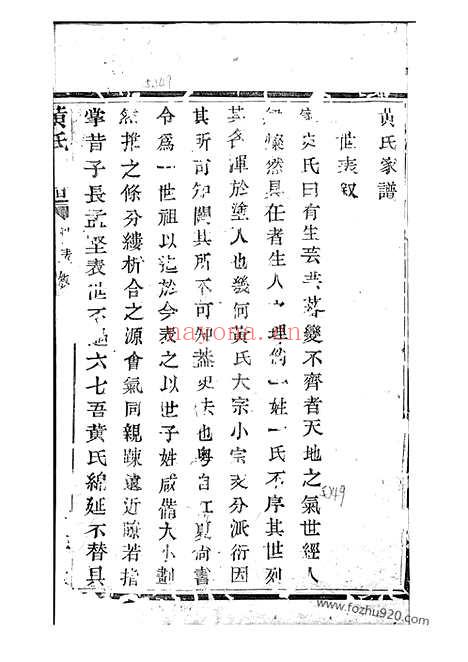 黃氏家譜
世表敘
氏曰有生芸芸變不齊者天地之氣世經人
燦然具在者生人理倘一姓一氏不序其世列
其名渾於塗人也幾何黃氏大宗小宗支分派衍因
其所可知闕其所不可知蓋史法也粵自江夏尚書
令為一世祖以迄於今表之以世子姓咸備大小劃
推之條分縷析合之源會氣同親踈遠近瞭若指
掌昔子長孟堅表世不過六七吾黃氏綿延不替具
黃氏
表敘
5X49
5X49
nayona.cn
www.fozhu920.com